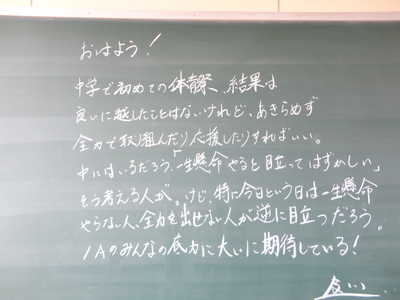 おはよう！
中学で初めての体育祭、結果は
良いに越したことはないけれど、あきらめず
全力で取り組んだり応援したりすればいい。
中にはいるだろう、「一生懸命やると目立ってはずかしい」
そう考える人が。けど、特に今日という日は一生懸命
やらない人、全力を出せない人が逆に目立つだろう。
1Aのみんなの底力に大いに期待している！